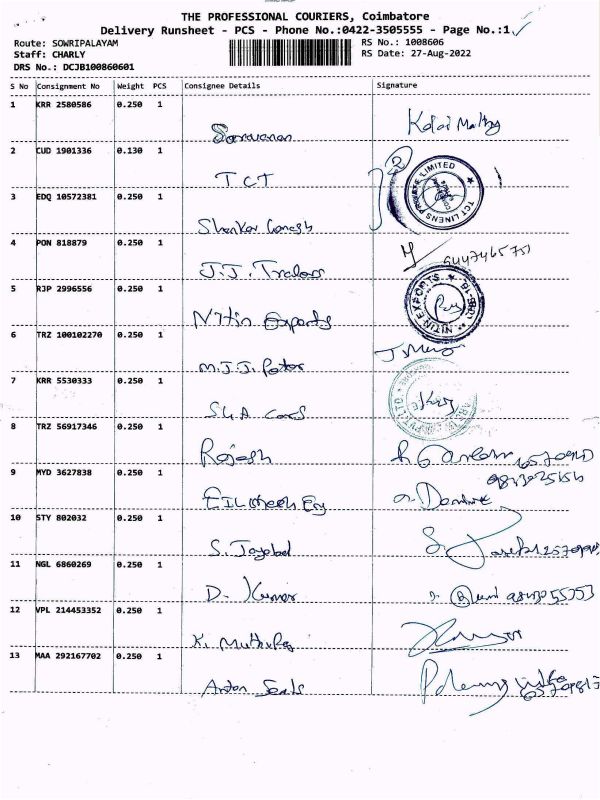 THE PROFESSIONAL COURIERS, Coimbatore
Delivery Runsheet - PCS - Phone No.:0422-3505555 - Page No.:1
Route: SOWRIPALAYAM
RS No.: 1008606
Staff: CHARLY
RS Date: 27-Aug-2022
DRS No.: DCJB100860601
S No Consignment No Weight PCS Consignee Details Signature
1 KRR 2580586 0.250 1
Saravanan
2 CUD 1901336 0.130 1
TCT
TCT LINENS PRIVATE LIMITED
3 EDQ 10572381 0.250 1
Shankar Ganesh
4 PON 818879 0.250 1
J.J. Tralars
9447465751
5 RJP 2996556 0.250 1
Nitin Exports
NITIN EXPORTS
6 TRZ 100102270 0.250 1
M.J.J. Peter
7 KRR 5530333 0.250 1
S&A Cars
8 TRZ 56917346 0.250 1
Rajesh
9 MYD 3627838 0.250 1
10 STY 802032 0.250 1
S.
11 NGL 6860269 0.250 1
D. Kumar
12 VPL 214453352 0.250 1
K. Muthuraj
13 MAA 292167702 0.250 1
Anton